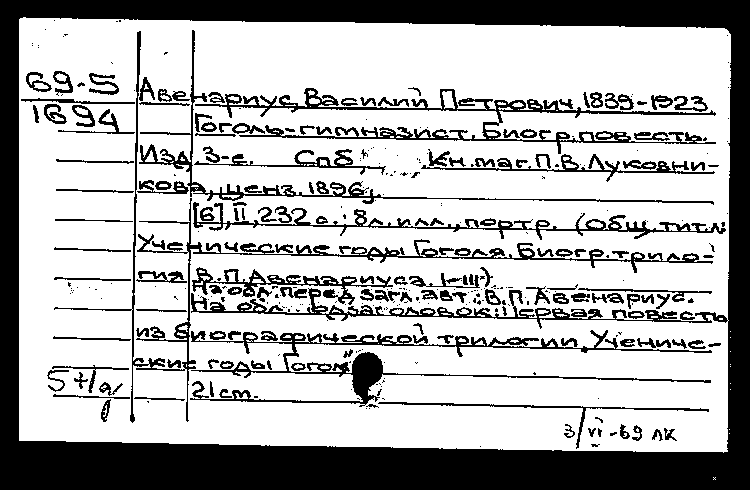 69-5
1694
Авенариус, Василий Петрович, 1839-1923.
Гоголь-гимназист. Биогр. повесть.
Изд. 3-е. Спб, Кн. маг. П.В. Луковни-
кова, ценз. 1896.
[6], II, 232 с.; 8 л. илл., портр. (Общ. тит. л:
Ученические годы Гоголя. Биогр. трило-
гия В.П. Авенариуса. I-III)
На обл. перед загл. авт.: В.П. Авенариус.
На обл. подзаголовок: Первая повесть
из биографической трилогии "Учениче-
ские годы Гоголя"
21 см.
3/VI-69 ЛК